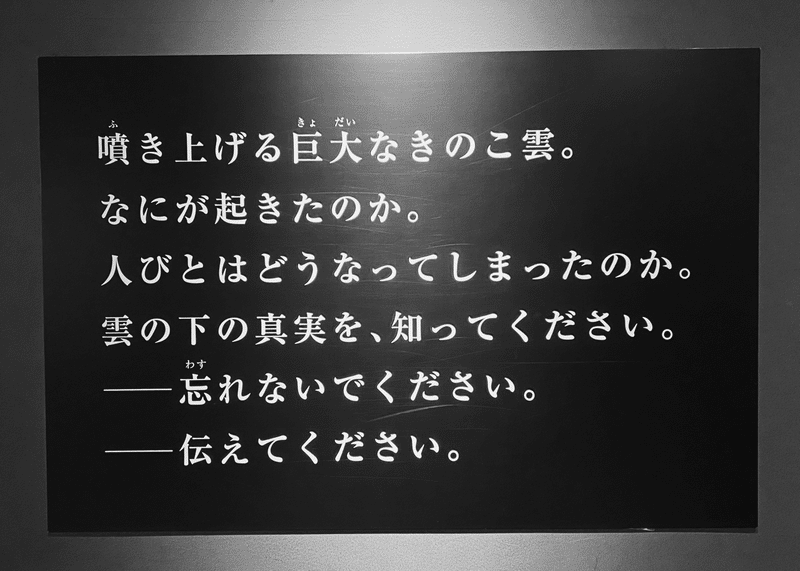 噴き上げる巨大なきのこ雲。
なにが起きたのか。
人びとはどうなってしまったのか。
雲の下の真実を、知ってください。
──忘れないでください。
──伝えてください。